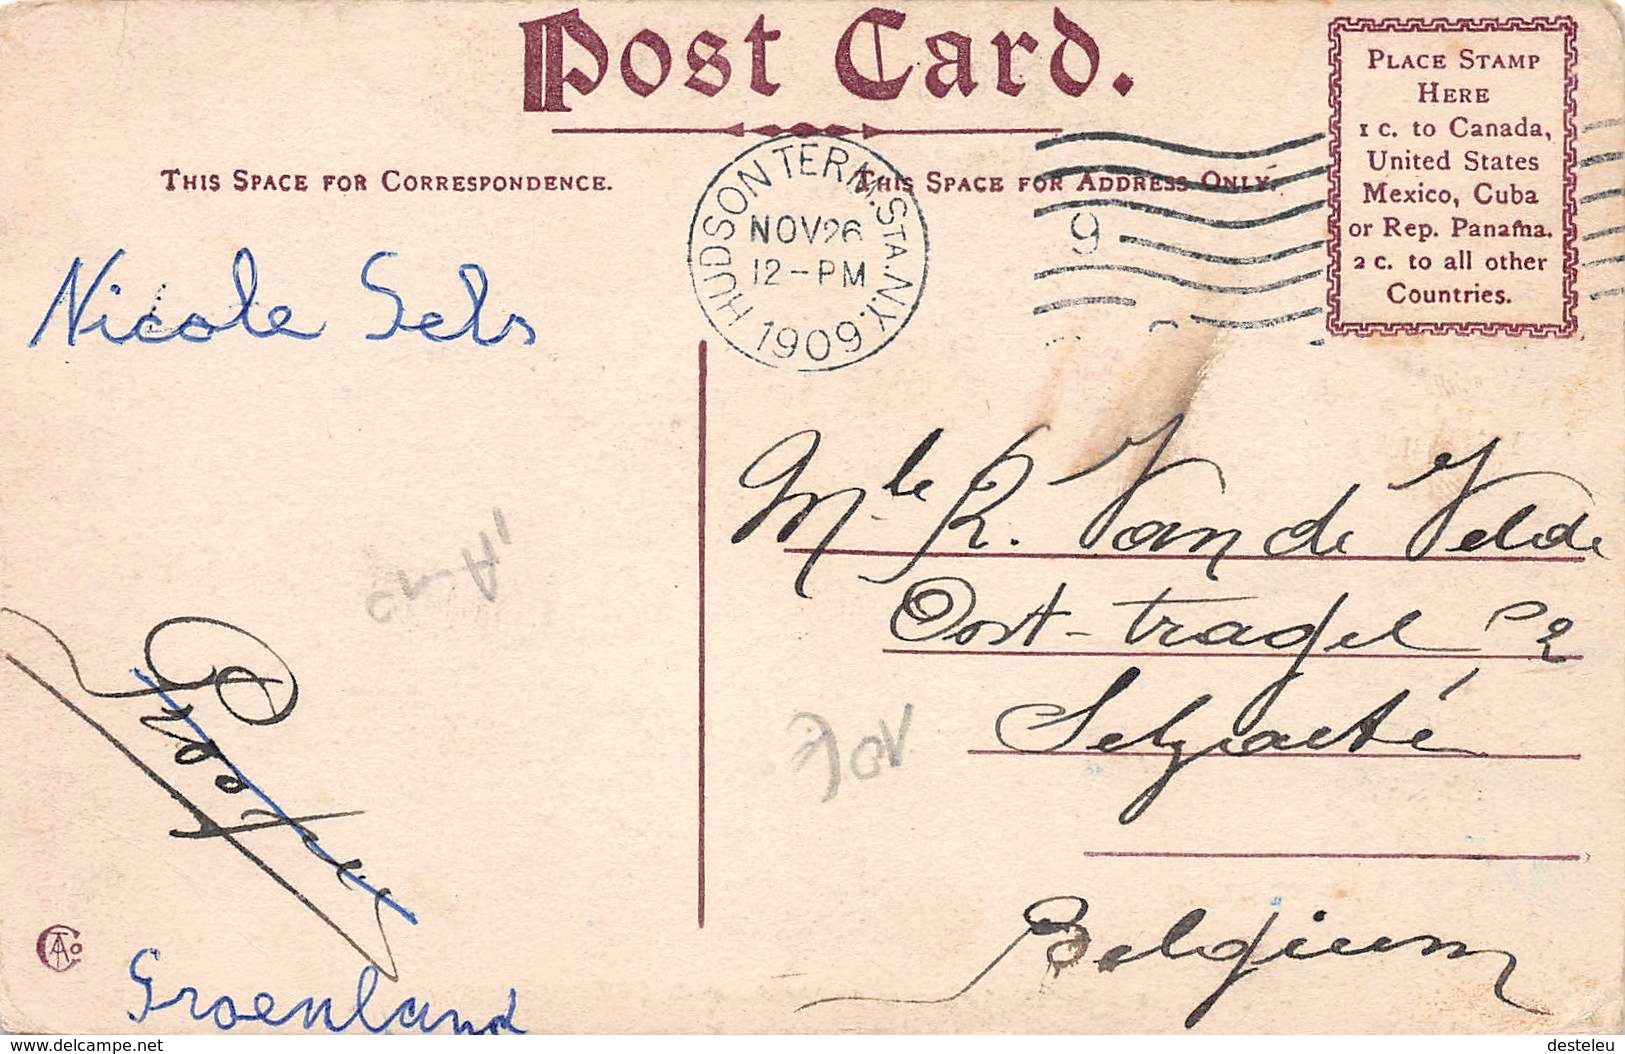 Post Card.
THIS SPACE FOR CORRESPONDENCE.
THIS SPACE FOR ADDRESS ONLY.
PLACE STAMP
HERE
1 C. to Canada,
United States
Mexico, Cuba
or Rep. Panama.
2 C. to all other
Countries.
HUDSON TERM. STA. N.Y.
NOV 26
12-PM
1909
9
Nicole Sels
Mle R. Van de Velde
Oost-
Belgium
Groenland
www.delcampe.net
desteleu